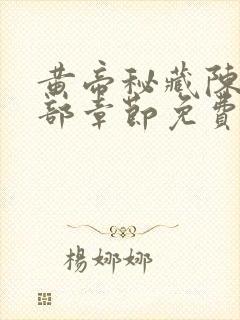 黄帝秘藏陳
部章節免費
楊娜娜